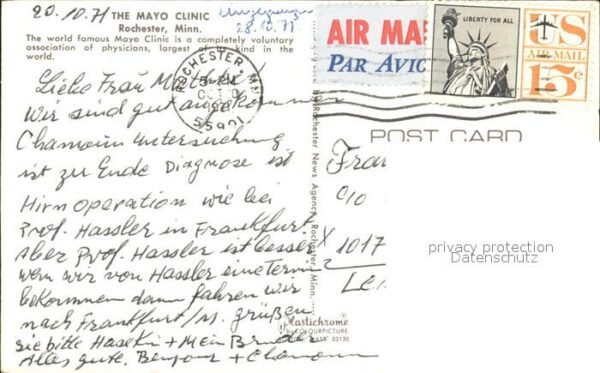 20.10.71 THE MAYO CLINIC
Rochester, Minn.
The world famous Mayo Clinic is a completely voluntary
association of physicians, largest of its kind in the
world.
28.10.71
AIR MAIL
PAR AVION
LIBERTY FOR ALL
US
AIR MAIL
15¢
ROCHESTER MN
PM
OCT 20
55901
POST CARD
Liebe Frau
Wir sind gut angekommen
Chamoun Untersuchung
ist zur Ende Diagnose ist
Hirn operation wie bei
Prof. Hassler in Frankfurt.
Aber Prof. Hassler ist besser
wenn wir von Hassler eine Termin
bekommen dann fahren wir
nach Frankfurt/M. grüßen
sie bitte + Mein Bruder
Alles gute. + Chamoun
Rochester News Agency, Rochester, Minn.
Plastichrome
by COLOURPICTURE
02130
Frau
c/o
1017
privacy protection
Datenschutz